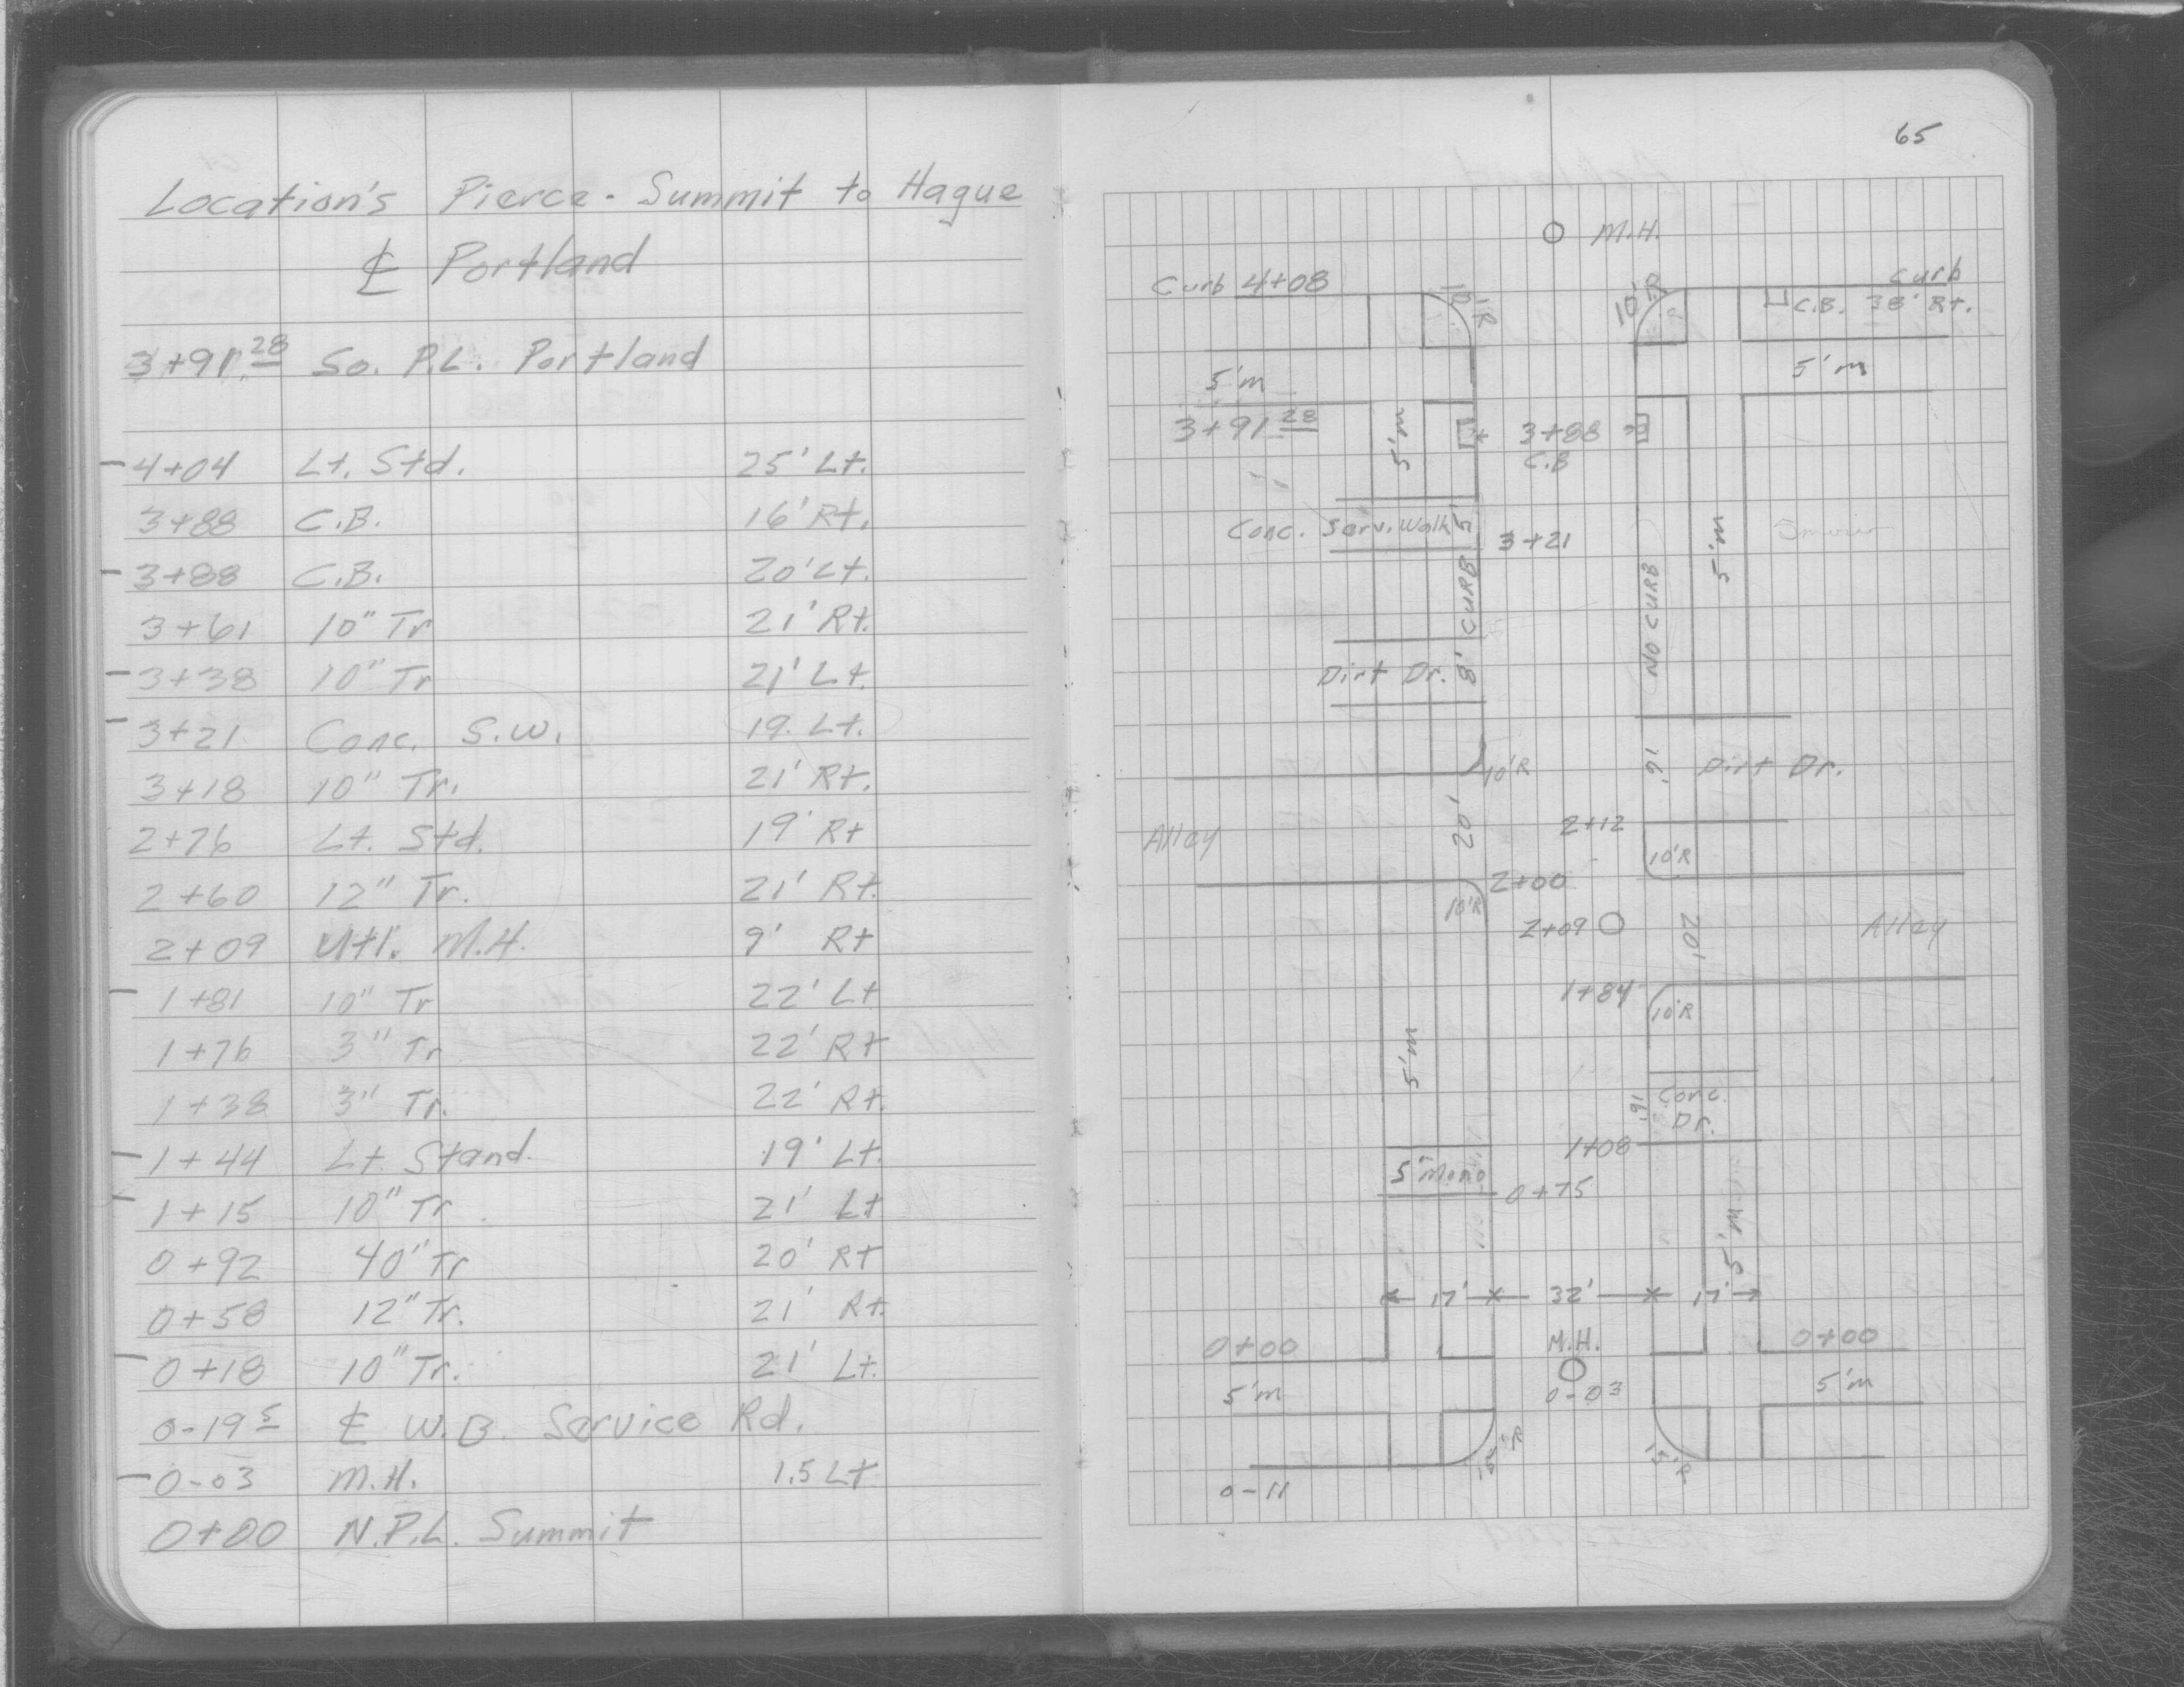 Location's Pierce - Summit to Hague
℄ Portland
3+91.28 So. P.L. Portland
4+04 Lt. Std. 25' Lt.
3+88 C.B. 16' Rt.
3+88 C.B. 20' Lt.
3+61 10" Tr 21' Rt.
3+38 10" Tr 21' Lt.
3+21 Conc. S.W. 19. Lt.
3+18 10" Tr. 21' Rt.
2+76 Lt. Std. 19' Rt
2+60 12" Tr. 21' Rt.
2+09 Utl. M.H. 9' Rt
1+81 10" Tr 22' Lt
1+76 3" Tr 22' Rt
1+38 3" Tr. 22' Rt.
1+44 Lt. Stand. 19' Lt.
1+15 10" Tr 21' Lt
0+92 40" Tr 20' Rt
0+58 12" Tr. 21' Rt.
0+18 10" Tr. 21' Lt.
0-19 5 ℄ W.B. Service Rd.
0-03 M.H. 1.5 Lt
0+00 N.P.L. Summit
65
M.H.
Curb 4+08
10'R
10'R
Curb
C.B. 38' Rt.
5'm
5'm
3+91.28
5'm
3+88
C.B
Conc. Serv. Walk 5'
3+21
CURB
NO CURB
5'm
Dirt Dr. 8'
10'R
16'
Dirt Dr.
Alley
20'
2+12
10'R
2+00
10'R
2+09
20'
Alley
1+84
10'R
5'm
16'
Conc.
Dr.
1+08
5' Mono
0+75
5'm
17' 32' 17'
0+00
M.H.
0+00
5'm
0-03
5'm
15'R
15'R
0-11